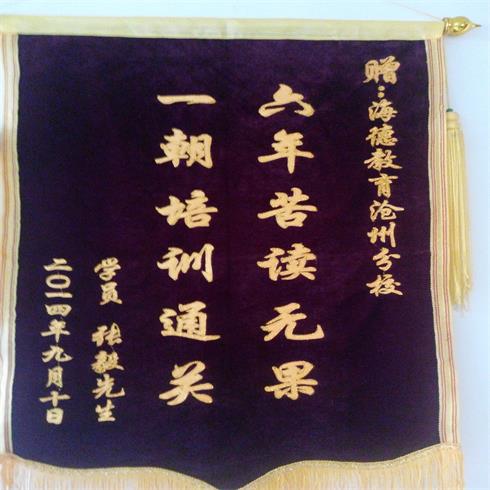 赠:海德教育沧州分校
六年苦读无果
一朝培训通关
学员 张毅先生
二〇一四年九月十日